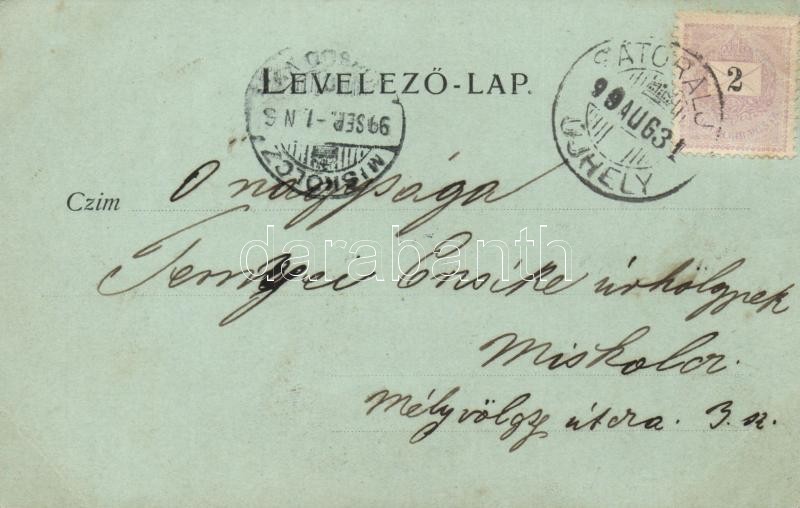 LEVELEZŐ-LAP.
99 SEP. -1. N 6
MISKOLCZ
SÁTORALJA
99 AUG 31
UJHELY
2
Czim
O nagysága
Ensike úrhölgynek
Miskolcz.
Mélyvölgy útcza. 3. sz.
darabanth